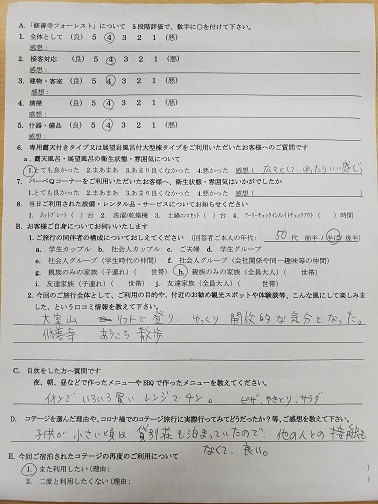 A. 「修善寺フォーレスト」について 5段階評価で、数字に○を付けて下さい。
1. 全体として (良) 5 4 3 2 1 (悪)
感想:
2. 接客対応 (良) 5 4 3 2 1 (悪)
感想:
3. 建物・客室 (良) 5 4 3 2 1 (悪)
感想:
4. 清掃 (良) 5 4 3 2 1 (悪)
感想:
5. 什器・備品 (良) 5 4 3 2 1 (悪)
感想:
6. 専用露天付きタイプ又は展望岩風呂付大型棟タイプをご利用いただいたお客様へのご質問です
a. 露天風呂・展望風呂の衛生状態・雰囲気について
1.とても良かった 2.まあまあ 3.あまり良くなかった 4.悪かった 感想( 広々として、ゆったりいい感じ )
7. バーベQコーナーをご利用いただいたお客様へ、衛生状態・雰囲気はいかがでしたか
1.とても良かった 2.まあまあ 3.あまり良くなかった 4.悪かった 感想( )
8. 当日ご利用された設備・レンタル品・サービスについてお知らせください
1. ホットプレート( )台 2. 洗濯/乾燥機 3. 土鍋のセット( )台 4. アーリーチェックイン/レイトチェックアウト( )時間
B. お客様ご自身についてお伺いいたします
1. ご旅行の同伴者の構成についておしえてください (回答者ご本人の年代: 50 代 前半 ・ 中辺 後半)
a. 学生カップル b. 社会人カップル c. ご夫婦 d. 学生グループ
e. 社会人グループ(学生時代の仲間) f. 社会人グループ(会社関係や同一趣味等の仲間)
g. 親族のみの家族(子連れ)( 世帯) h. 親族のみの家族(全員大人)( 世帯)
i. 友達家族(子連れ)( 世帯) j. 友達家族(全員大人)( 世帯)
2. 今回のご旅行全体として、ご利用の目的や、付近のお勧め観光スポットや体験談等、こんな風にして楽しみました、という口コミ情報を教えて下さい。
大室山 リフトで登り、ゆっくり 開放的な気分となった。
修善寺 あちこち 散歩
C. 自炊をした方へ質問です
夜、朝、昼などで作ったメニューやBBQで作ったメニューを教えてください。
イオンで いろいろ買い、レンジでチン。 ピザ、やきとり、サラダ
D. コテージを選んだ理由や、コロナ禍でのコテージ旅行に実際行ってみてどうだったか?等、ご感想を教えて下さい。
子供が 小さい頃は 貸別荘も泊まっていたので、他の人との 接触も
なくて、良い。
E. 今回ご宿泊されたコテージの再度のご利用について
1. また利用したい(理由: )
2. 二度と利用したくない(理由: )